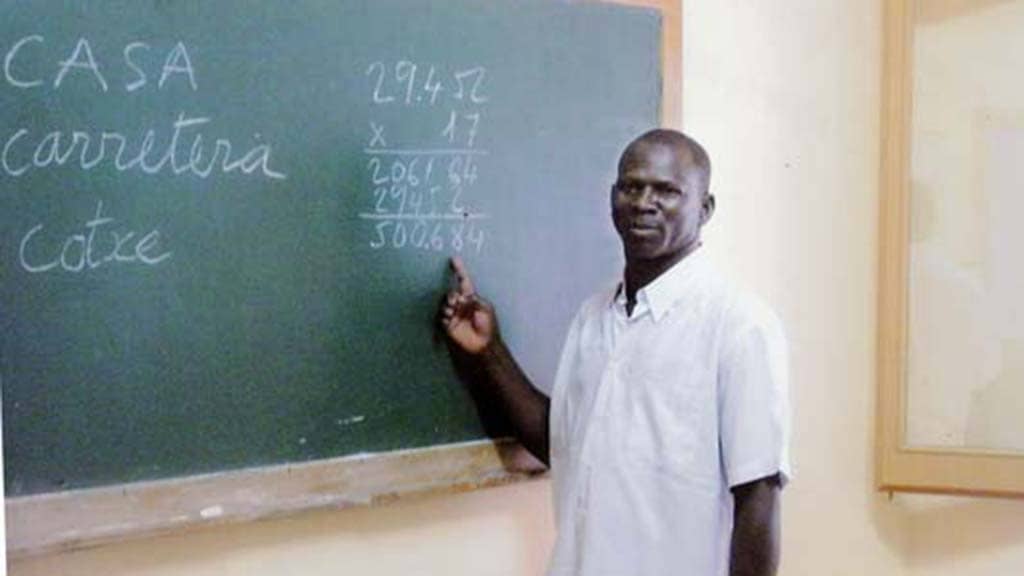 CASA
carretera
cotxe
29.452
x 17
206184
29452
500.684